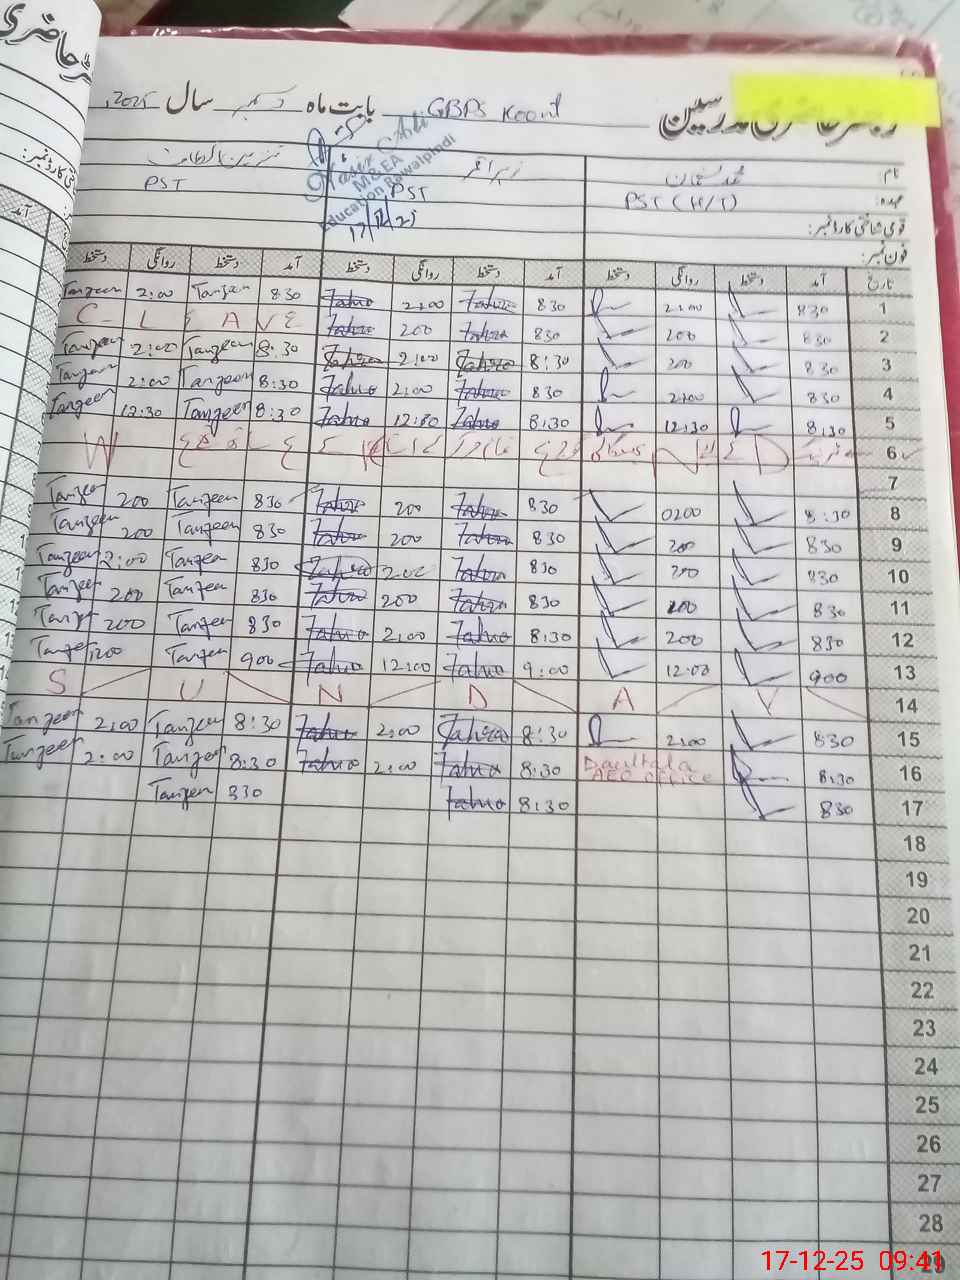 رجسٹر حاضری مدرسین GBPS Koont بابت ماہ دسمبر سال 2025
نام: محمد زہرا
عہدہ: PST (H/T) PST PST
قومی شناختی کارڈ نمبر:
فون نمبر:
Nasir Ali
M&EA
Education Rawalpindi
17/12/25
تاریخ آمد دستخط روانگی دستخط آمد دستخط روانگی دستخط آمد دستخط روانگی دستخط
1 830 2:00 830 Zahra 2:00 Zahra 8:30 Tanzeen 2:00 Tanzeen
2 830 200 830 Zahra 200 Zahra C L E A V E
3 830 200 8:30 Zahra 2:00 Zahra 8:30 Tanzeen 2:00 Tanzeen
4 830 2:00 830 Zahra 2:00 Zahra 8:30 Tanzeen 2:00 Tanzeen
5 8:30 12:30 8:30 Zahra 12:30 Zahra 8:30 Tanzeen 12:30 Tanzeen
6 W
7
8 8:30 0200 830 Zahra 200 Zahra 830 Tanzeen 200 Tanzeen
9 830 200 830 Zahra 200 Zahra 830 Tanzeen 200 Tanzeen
10 830 200 830 Zahra 200 Zahra 830 Tanzeen 2:00 Tanzeen
11 830 200 830 Zahra 200 Zahra 830 Tanzeen 200 Tanzeen
12 830 200 8:30 Zahra 2:00 Zahra 830 Tanzeen 200 Tanzeen
13 900 12:00 9:00 Zahra 12:00 Zahra 900 Tanzeen 1200 Tanzeen
14 S U N D A Y
15 830 2:00 8:30 Zahra 2:00 Zahra 8:30 Tanzeen 2:00 Tanzeen
16 8:30 Daultala AEO office 8:30 Zahra 2:00 Zahra 8:30 Tanzeen 2:00 Tanzeen
17 830 8:30 Zahra 830 Tanzeen
18
19
20
21
22
23
24
25
26
27
28
29
17-12-25 09:41